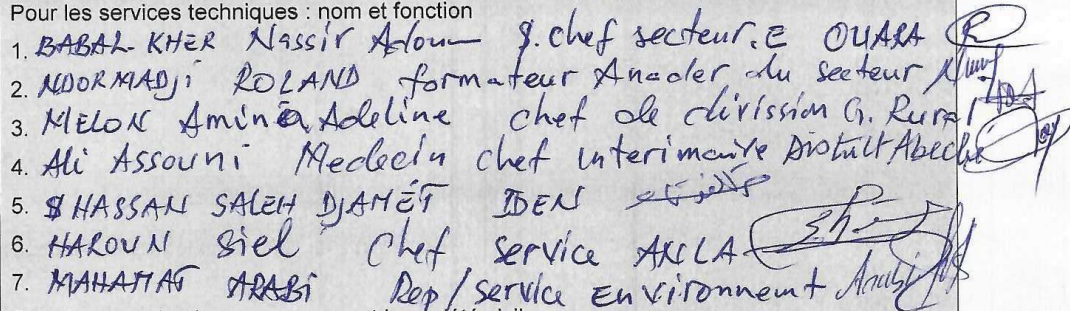 Pour les services techniques : nom et fonction
1. BABAL-KHER Nassir Adoum S. chef secteur. E OUARA
2. NDORMADJi ROLAND formateur Anader du secteur
3. MELOM Aminéa Adeline chef de divission G. Rural
4. Ali Assouni Medecin chef interimaire District Abeche
5. HASSAN SALEH DJAMET IDEN
6. HAROUN Siel Chef service
7. MAHAMAT ARABi Rep/service Environnemt